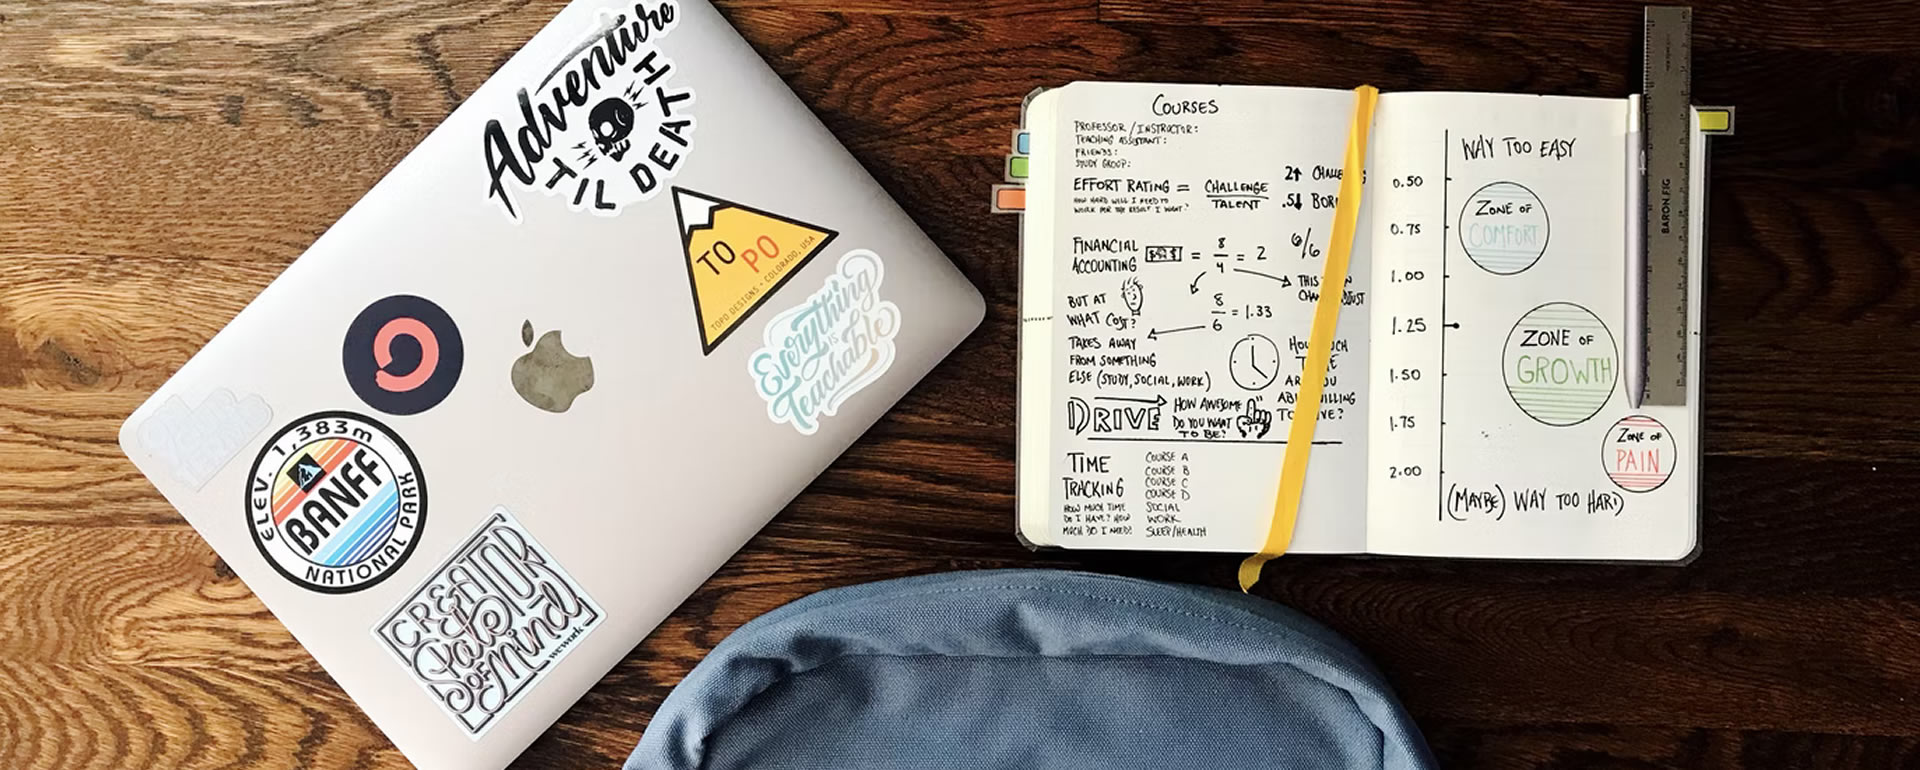 Adventure
TIL DEATH
TO PO
TOPO DESIGNS • COLORADO, USA
Everything
IS
Teachable
ELEV. 1,383m
BANFF
NATIONAL PARK
CREATOR
OF
Mind
wework
COURSES
PROFESSOR / INSTRUCTOR:
TEACHING ASSISTANT:
FRIENDS:
STUDY GROUP:
EFFORT RATING = CHALLENGE
TALENT
HOW HARD WILL I NEED TO
WORK FOR THE RESULT I WANT?
2↑
.5↓
FINANCIAL
ACCOUNTING
$$$ = 8/4 = 2
6/6
THIS
8/6 = 1.33
BUT AT
WHAT COST?
TAKES AWAY
FROM SOMETHING
ELSE (STUDY, SOCIAL, WORK)
DRIVE
HOW AWESOME
DO YOU WANT
TO BE?
TIME
TRACKING
HOW MUCH TIME
DO I HAVE? HOW
MUCH DO I NEED?
COURSE A
COURSE B
COURSE C
COURSE D
SOCIAL
WORK
SLEEP/HEALTH
WAY TOO EASY
0.50
0.75
1.00
1.25
1.50
1.75
2.00
ZONE OF
COMFORT
ZONE OF
GROWTH
ZONE OF
PAIN
(MAYBE) WAY TOO HARD
BARON FIG